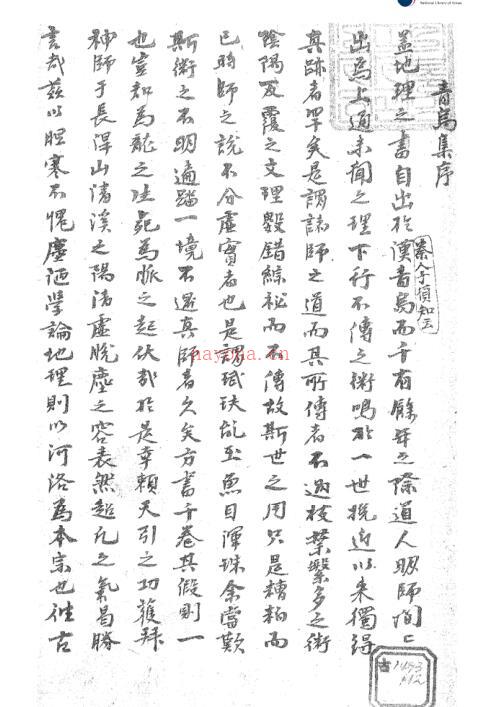 National Library of Korea
青烏集序
盖地理之書自出於漢青烏而千有餘年之際道人明師間〻
秦人于須知云
出焉上通未聞之理下行不傳之術鳴於一世挽近以来獨得
真跡者罕矣是謂諸師之道而其所傳者不過枝葉繁多之術
陰陽反覆之文理數錯綜秘而不傳故斯世之用只是糟粕而
已時師之說不分虛實者也是謂珷玞亂玉魚目渾珠余嘗歎
斯術之不明遍踏一境不遇真師者久矣方書千卷其假則一
也豈知為龍之生死為脉之起伏哉於是幸賴天引之功獲拜
神師于長山清溪之陽清虛脫塵之容表然超凡之氣曷勝
言哉玆以胆寒不愧塵陋學論地理則以河洛為本宗也往古
nayona.cn
古